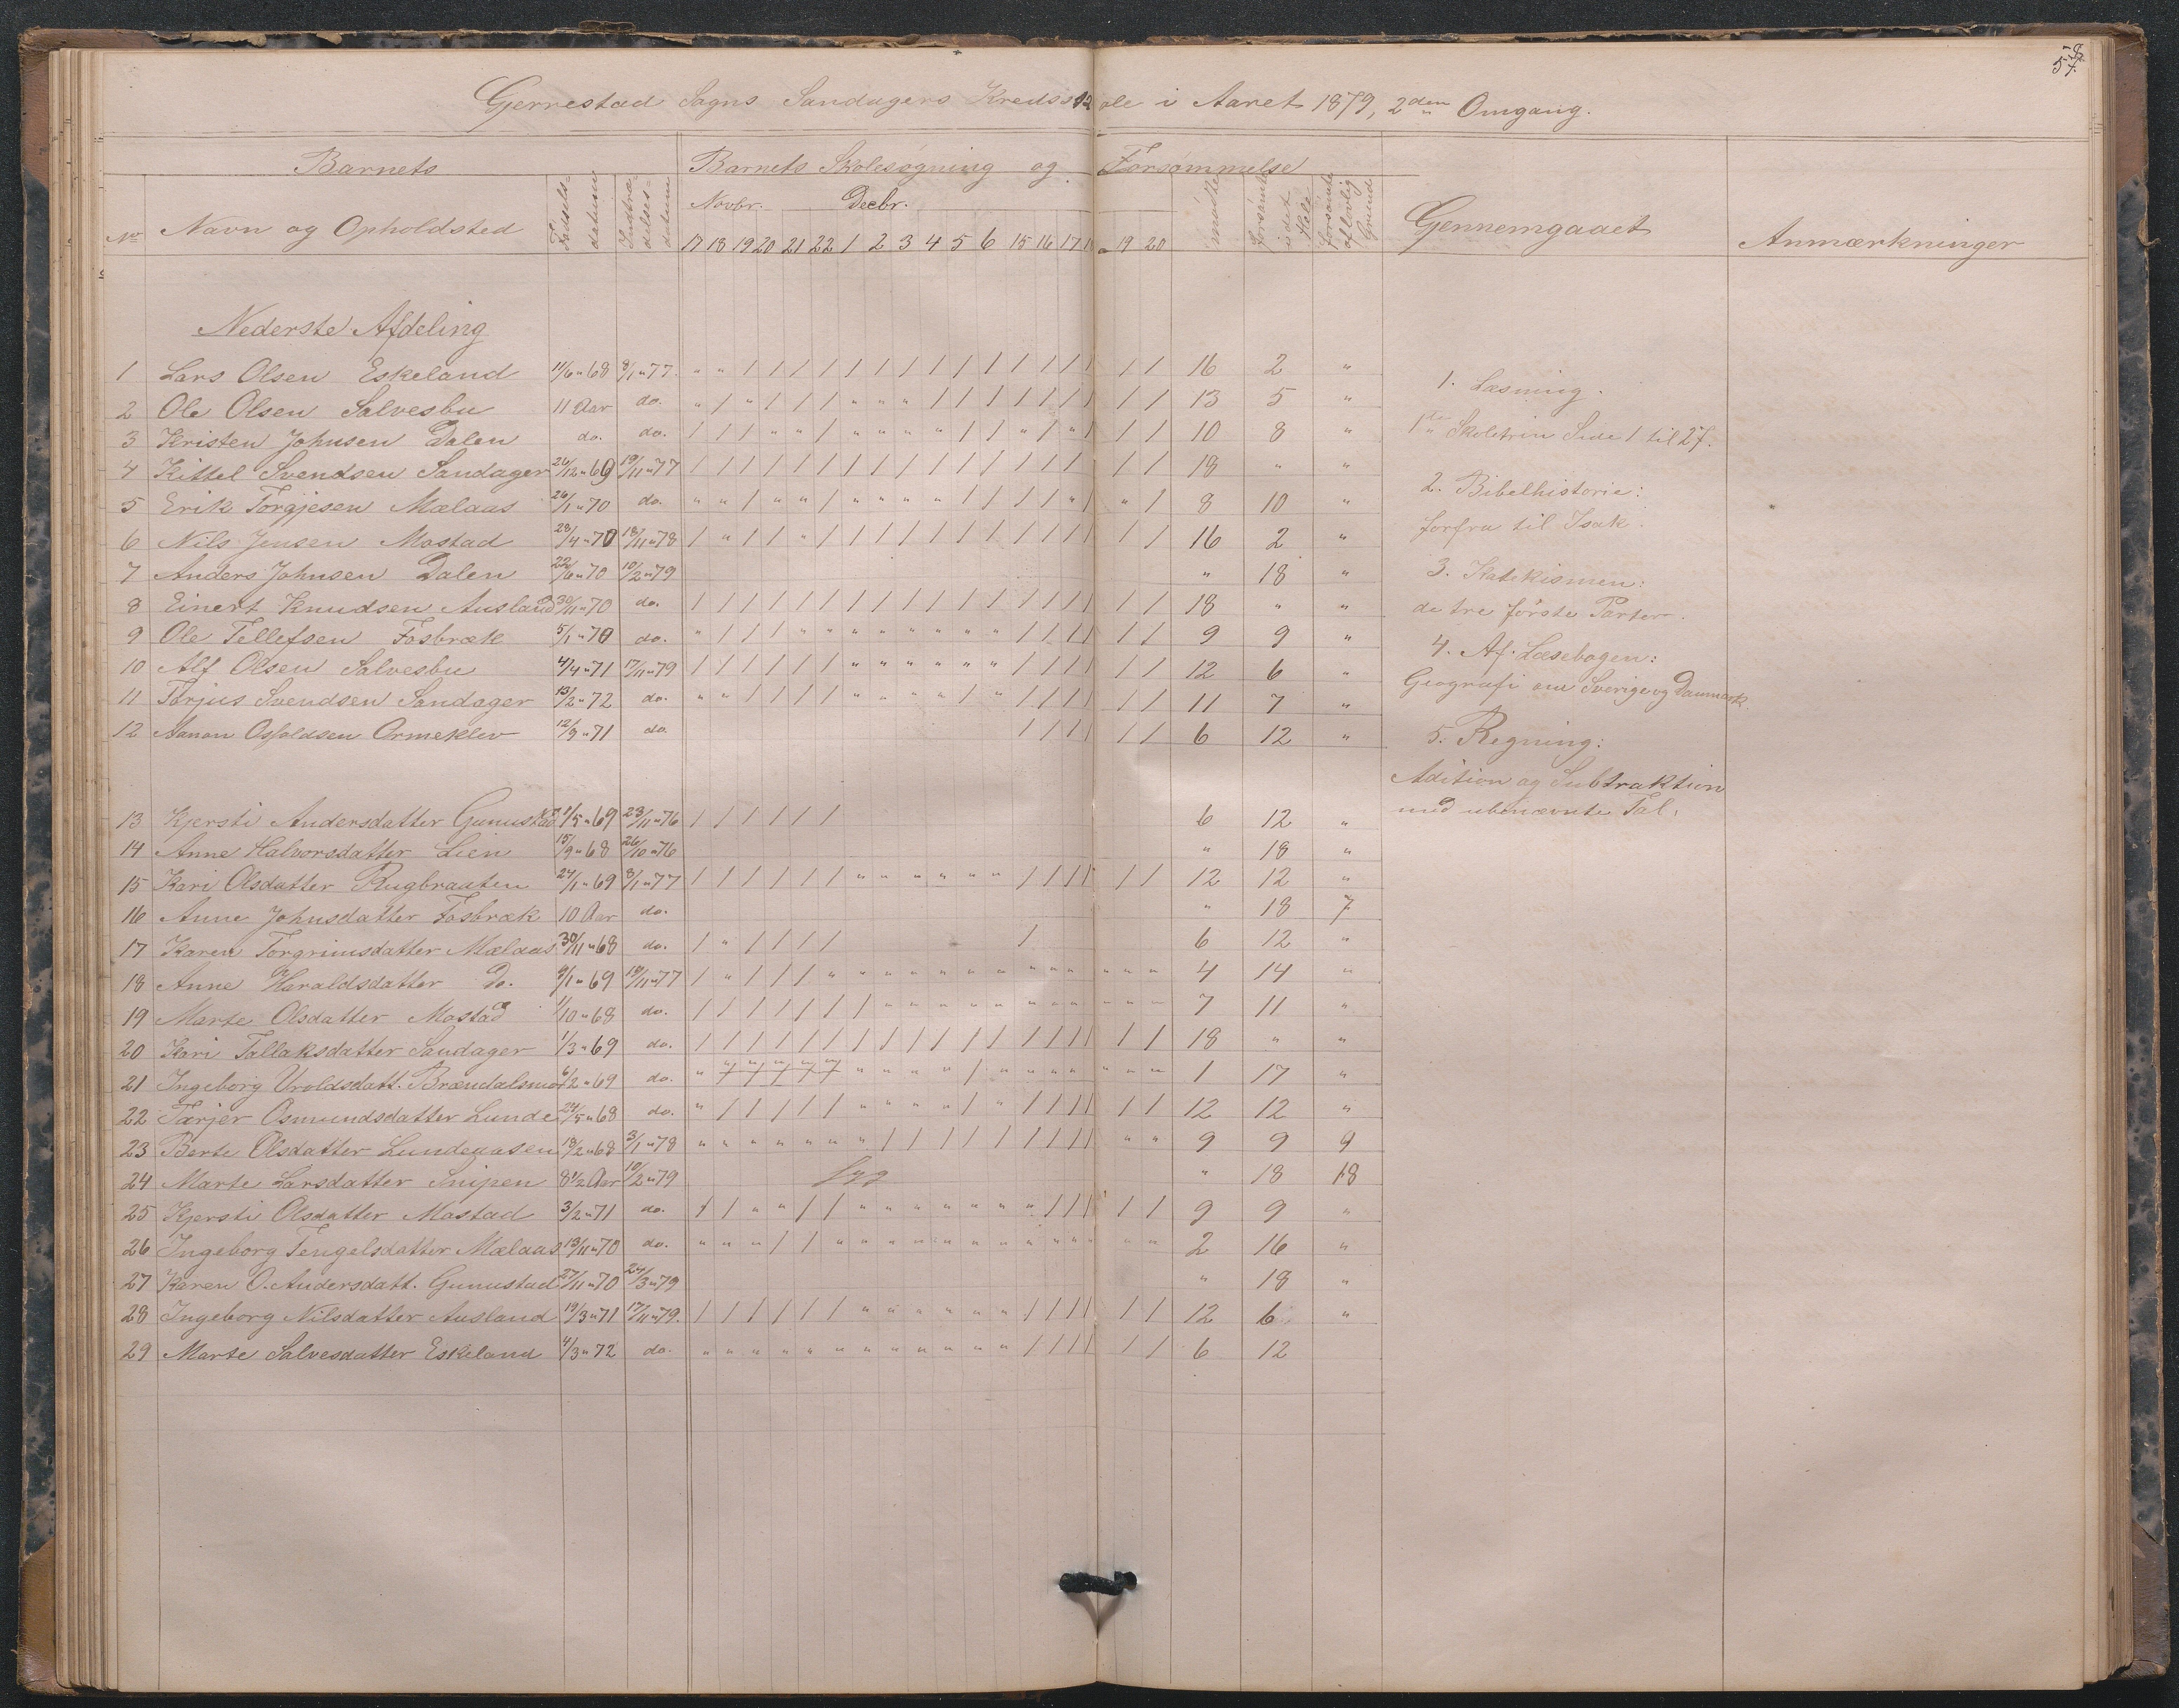 58
57.
Gjerrestad Sogns Sandagers Kredsskole i Aaret 1879, 2den Omgang.
Barnets Barnets Skolesøgning og Forsømmelse
No Navn og Opholdsted Fødsels-datum Indtræ-delses-datum Novbr. Decbr. mødte forsømte i det Hele forsømte af lovlig Grund Gennemgaaet Anmærkninger
17 18 19 20 21 22 1 2 3 4 5 6 15 16 17 18 19 20
Nederste Afdeling
1 Lars Olsen Eskeland 11/6 " 68 8/1 " 77. " " / / / / / / / / / / / / / / / / 16 2 "
1. Læsning.
2 Ole Olsen Salvesbu 11 Aar do. " / " / / / " " " / / / / / / / / / 13 5 "
3 Kristen Johnsen Dalen do. do. / / / " " / " " " " / / " / " / / / 10 8 "
1ste Skoletrin Side 1 til 27.
4 Kittel Svendsen Sandager 26/12 " 69 19/11 " 77 / / / / / / / / / / / / / / / / / / 18 " "
2. Bibelhistorie:
5 Erik Torgjesen Mælaas 26/1 " 70 do. " " / " " / " " " " / / / / " / " / 8 10 "
6 Nils Jensen Mostad 28/4 " 70 18/11 " 78 / " / / " / / / / / / / / / / / / / 16 2 "
forfra til Isak.
7 Anders Johnsen Dalen 22/6 " 70 10/2 " 79 " 18 "
3. Katekismen:
8 Einert Knudsen Ausland 30/11 " 70 do. / / / / / / / / / / / / / / / / / / 18 " "
de tre første Parter.
9 Ole Tellefsen Fosbræk 5/1 " 70 do. " / / / " " " " " " " " / / / / / / 9 9 "
4. Af Læsebogen:
10 Alf Olsen Salvesbu 4/4 " 71 17/11 " 79 / / / / / / " " " " " " / / / / / / 12 6 "
Geografi om Sverige og Danmark.
11 Torjus Svendsen Sandager 13/2 " 72 do. " " / / / / " " " " / " / / / / / / 11 7 "
12 Aanon Osfoldsen Ormeklev 12/9 " 71 do / / / / / / 6 12 "
5. Regning:
Adition og Subtraktion
med ubenævnte Tal.
13 Kjersti Andersdatter Gunustad 21/5 " 69 23/11 " 76 / / / / / / 6 12 "
14 Anne Halvorsdatter Lien 15/9 " 68 26/10 " 76 " 18 "
15 Kari Olsdatter Rugbraaten 24/1 " 69 8/1 " 77 / / / / / / " " " " " " / / / / / / 12 12 "
16 Anne Johnsdatter Fosbræk 10 Aar do. " 18 7
17 Karen Torgrimsdatter Mælaas 30/11 " 68 do. / " / / / / / 6 12 "
18 Anne Haraldsdatter Do. 9/1 " 69 19/11 " 77 / " / / / " " " " " " " " " " " " " 4 14 "
19 Marte Olsdatter Mostad 1/10 " 68 do. / / / / / / / " " " " " " " " " " " 7 11 "
20 Kari Tallaksdatter Sandager 1/3 " 69 do. / / / / / / / / / / / / / / / / / / 18 " "
21 Ingeborg Uroldsdatt. Brændalsmo 6/2 " 69 do. " " " " " " " " " " / " " " " " " " 1 17 "
22 Tarjer Osmundsdatter Lunde 24/5 " 68 do. " / / / / / " " " " / " / / / / / / 12 12 "
23 Berte Olsdatter Lundeaasen 18/2 " 68 3/1 " 78 " " " " " " " / / / / / / / / / " " 9 9 9
24 Marte Larsdatter Snipen 8 1/2 Aar 10/2 " 79 syg " 18 18
25 Kjersti Olsdatter Mostad 3/2 " 71 do. / / " " / / " " " " " " " / / / / / 9 9 "
26 Ingeborg Tengelsdatter Mælaas 13/11 " 70 do. " " " / / " " " " " " " " " " " " " 2 16 "
27 Karen O. Andersdatt. Gunustad 27/11 " 70 24/3 " 79 " 18 "
28 Ingeborg Nilsdatter Ausland 19/3 " 71 17/11 " 79. / / / / / / " " " " " " / / / / / / 12 6 "
29 Marte Salvesdatter Eskeland 4/3 " 72 do. " " " " " " " " " " " " / / / / / / 6 12